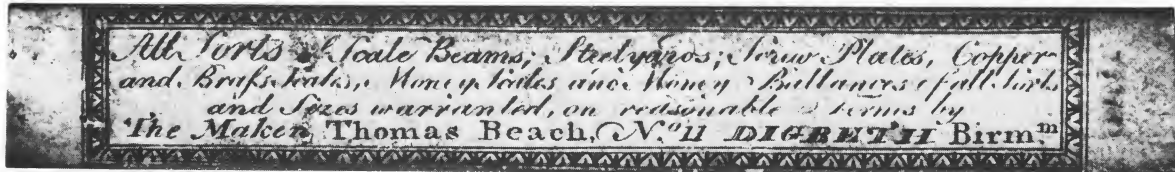 All Sorts of Scale Beams; Steelyards; Screw Plates, Copper
and Braſs Scales, Money Scales and Money Ballances of all Sorts
and Sizes warranted, on reasonable Terms by
The Maker, Thomas Beach, N.º 11 DIGBETH Birm.ᵐ